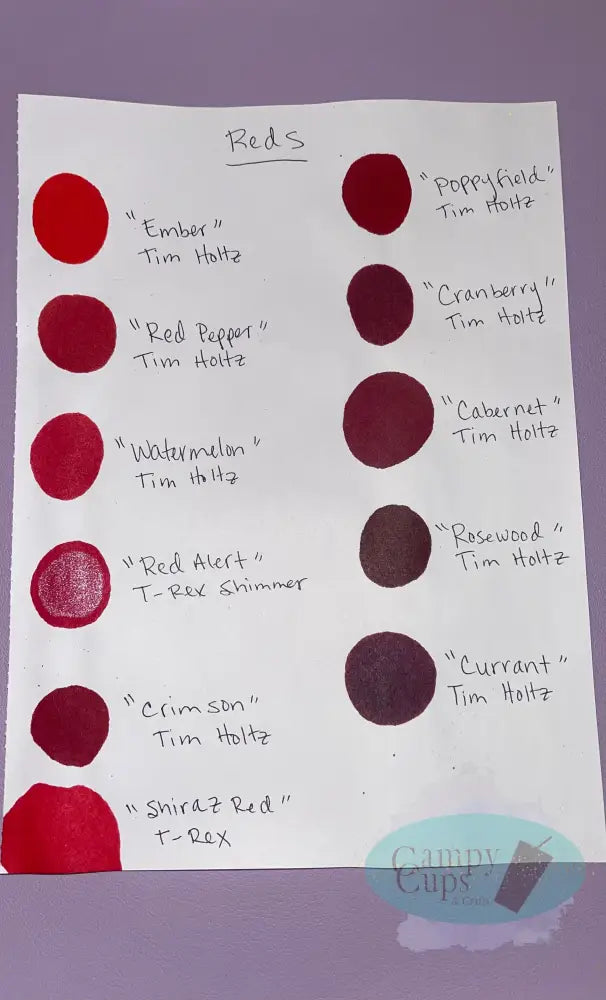 Reds
"Ember"
Tim Holtz
"Red Pepper"
Tim Holtz
"Watermelon"
Tim Holtz
"Red Alert"
T-Rex Shimmer
"Crimson"
Tim Holtz
"Shiraz Red"
T-Rex
"Poppyfield"
Tim Holtz
"Cranberry"
Tim Holtz
"Cabernet"
Tim Holtz
"Rosewood"
Tim Holtz
"Currant"
Tim Holtz
Campy
Cups
& Crafts